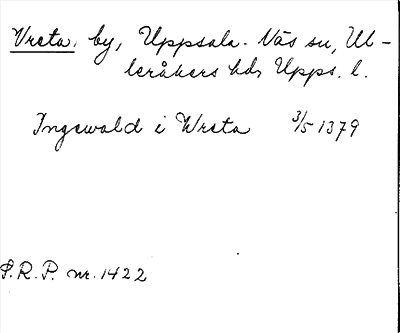 Vreta, by, Uppsala-Näs sn, Ul-
leråkers hd, Upps. l.
Ingewald i Wreta 3/5 1379
S.R.P. nr. 1422